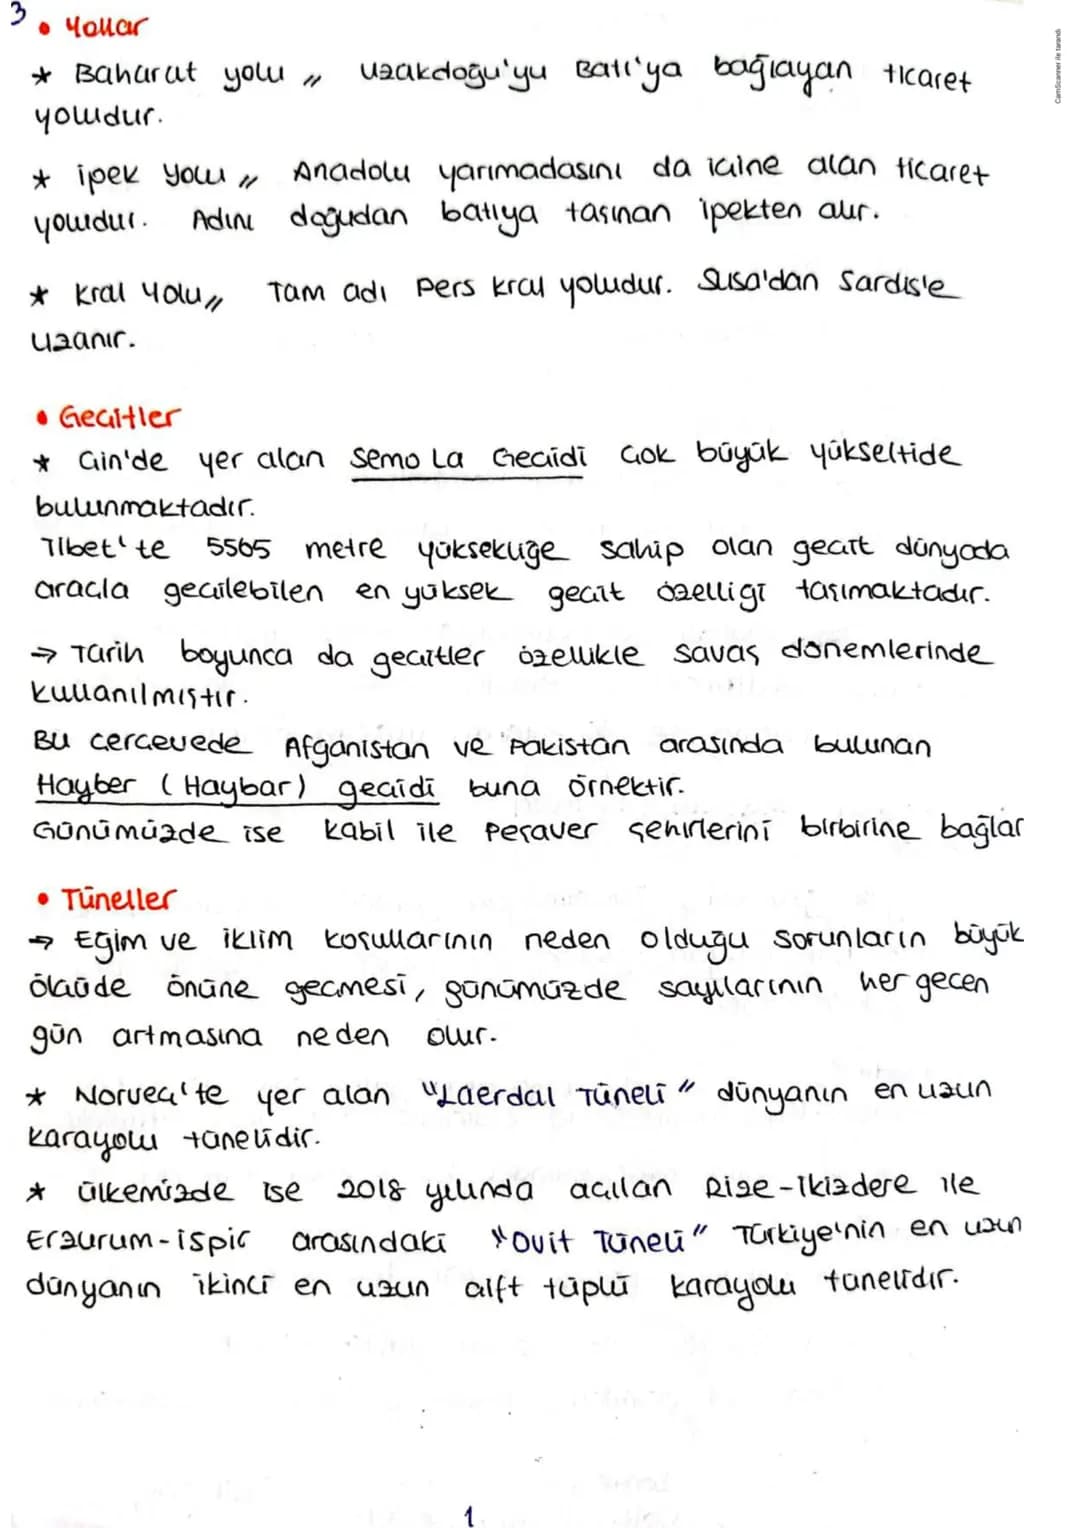 3
• Yollar
* Baharat yolu ,, Uzakdoğu'yu Batı'ya bağlayan ticaret
yoludur.
* ipek yolu ,, Anadolu yarımadasını da içine alan ticaret
yoludur. Adını doğudan batıya taşınan ipekten alır.
* Kral Yolu,, Tam adı Pers kral yoludur. Susa'dan Sardis'e
uzanır.
• Geçitler
* Çin'de yer alan Semo La Geçidi çok büyük yükseltide
bulunmaktadır.
Tibet'te 5565 metre yüksekliğe sahip olan geçit dünyada
araçla geçilebilen en yüksek geçit özelliği taşımaktadır.
→ Tarih boyunca da geçitler özellikle savaş dönemlerinde
kullanılmıştır.
Bu çerçevede Afganistan ve Pakistan arasında bulunan
Hayber (Haybar) geçidi buna örnektir.
Günümüzde ise Kabil ile Peşaver şehirlerini birbirine bağlar
• Tüneller
→ Eğim ve iklim koşullarının neden olduğu sorunların büyük
ölçüde önüne geçmesi, günümüzde sayılarının her geçen
gün artmasına neden olur.
* Norveç'te yer alan "Laerdal Tüneli" dünyanın en uzun
karayolu tünelidir.
* ülkemizde ise 2018 yılında açılan Rize-İkizdere ile
Erzurum-ispir arasındaki "Ovit Tüneli" Türkiye'nin en uzun
dünyanın ikinci en uzun çift tüplü karayolu tünelidir.
1
CamScanner ile tarandı